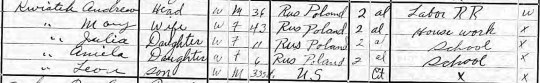 Kwiatek Andrew Head W M 36 Rus Poland 2 al Labor RR W
" Mary Wife W F 43 Rus Poland 2 al House work X
" Julia Daughter W F 11 Rus Poland 2 al School X
" Amila Daughter W F 6 Rus Poland 2 al School X
" Leon Son W M U.S Cit X X